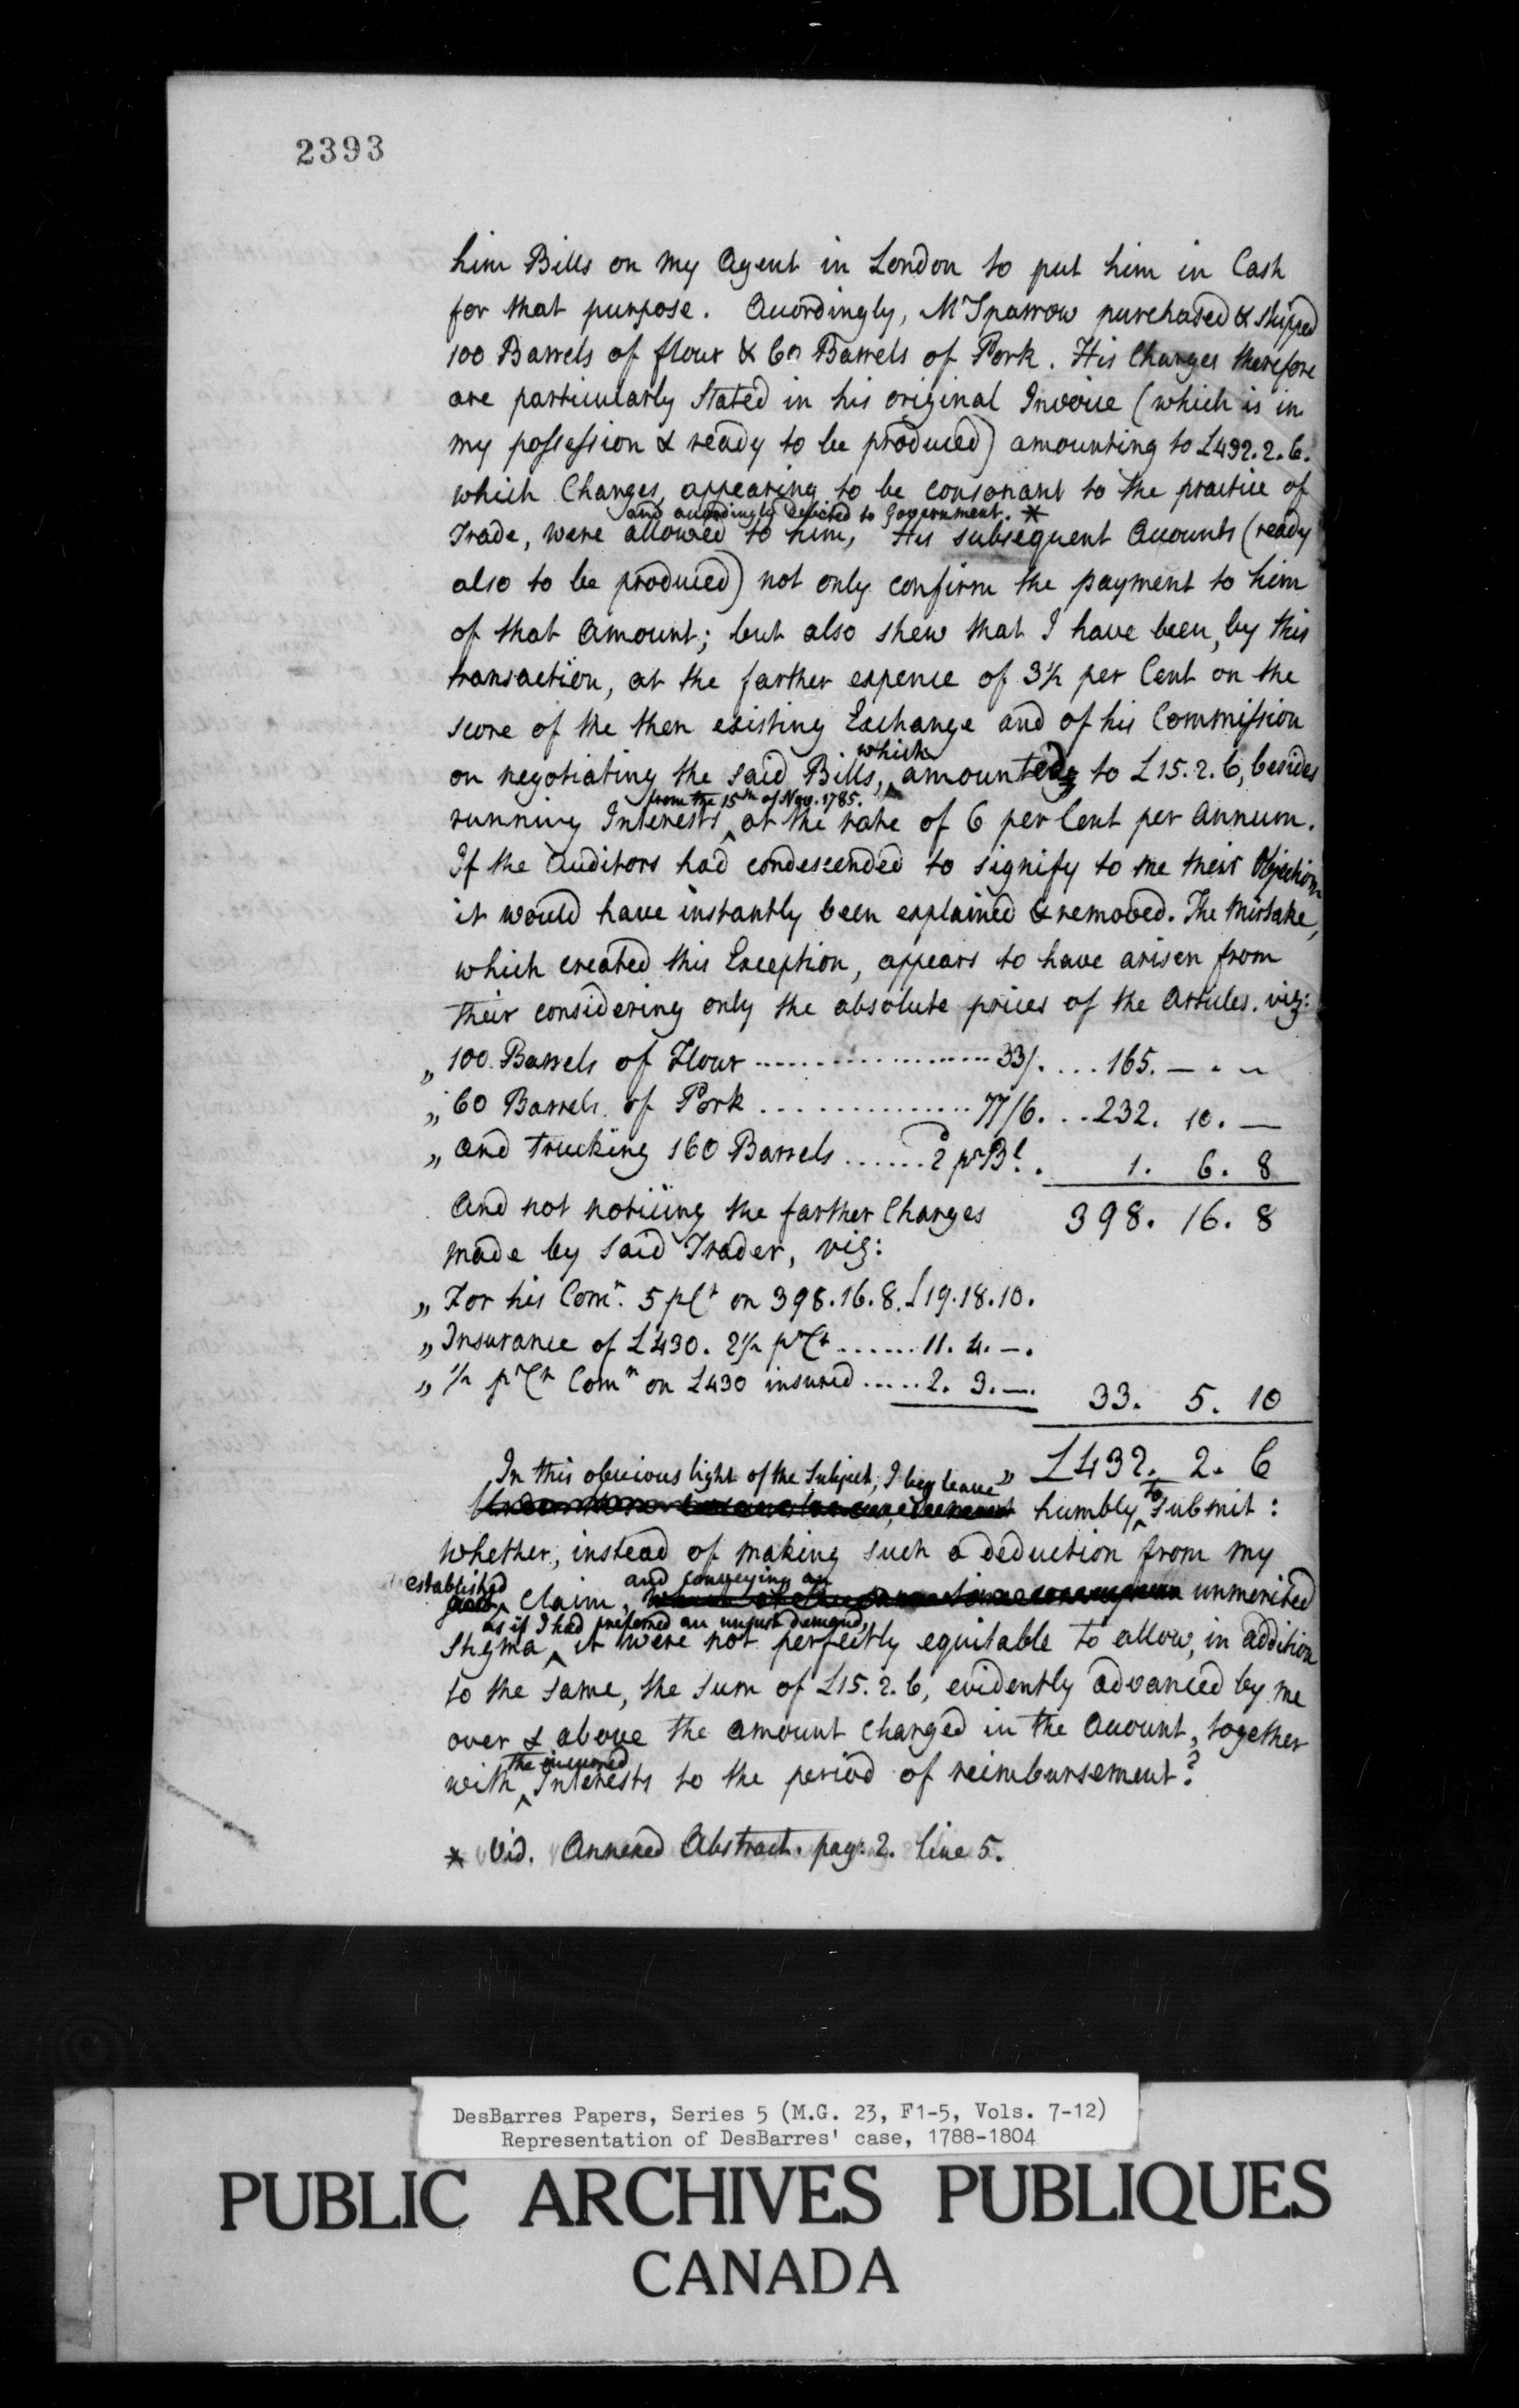 2393
him Bills on my Agent in London to put him in Cash
for that purpose. Accordingly, Mr Sparrow purchased & shipped
100 Barrels of flour & 60 Barrels of Pork. His Charges therefore
are particularly Stated in his original Invoice (which is in
my possession & ready to be produced) amounting to £432.2.6.
which Charges, appearing to be consonant to the practice of
and accordingly debited to Government. *
Trade, were allowed to him, His subsequent Accounts (ready
also to be produced) not only confirm the payment to him
of that Amount; but also shew that I have been, by this
transaction, at the farther expence of 3½ per Cent on the
score of the then existing Exchange and of his Commission
which
on negotiating the said Bills, amounted to £15.2.6, besides
from the 15th of Nov. 1785.
running Interests at the rate of 6 per Cent per Annum.
If the Auditors had condescended to signify to me their Objection
it would have instantly been explained & removed. The Mistake,
which created this Exception, appears to have arisen from
their considering only the absolute prices of the Articles. viz:
„ 100 Barrels of Flour .................... 33/. ... 165. — . —
„ 60 Barrels of Pork ................ 77/6. ... 232. 10. —
„ and trucking 160 Barrels ....... 2 pr Bl. . 1. 6. 8
And not noticing the farther Charges 398. 16. 8
made by said Trader, viz:
„ For his Comn. 5 pCt on 398.16.8. £19.18.10.
„ Insurance of £430. 2½ prCt ....... 11. 4. —.
„ ½ prCt Comn on £430 insured ..... 2. 3. —. 33. 5. 10
„ £432. 2. 6
In this obvious light of the Subject, I beg leave
humbly to submit:
Whether, instead of making such a deduction from my
established and conveying an
Claim, unmerited
as if I had preferred an unjust demand,
Stigma it were not perfectly equitable to allow, in addition
to the same, the sum of £15.2.6, evidently advanced by me
over & above the amount Charged in the Account, together
the incurred
with Interests to the period of reimbursement?
* Vid. Annexed Abstract. pag: 2. line 5.
DesBarres Papers, Series 5 (M.G. 23, F1-5, Vols. 7-12)
Representation of DesBarres' case, 1788-1804
PUBLIC ARCHIVES PUBLIQUES
CANADA